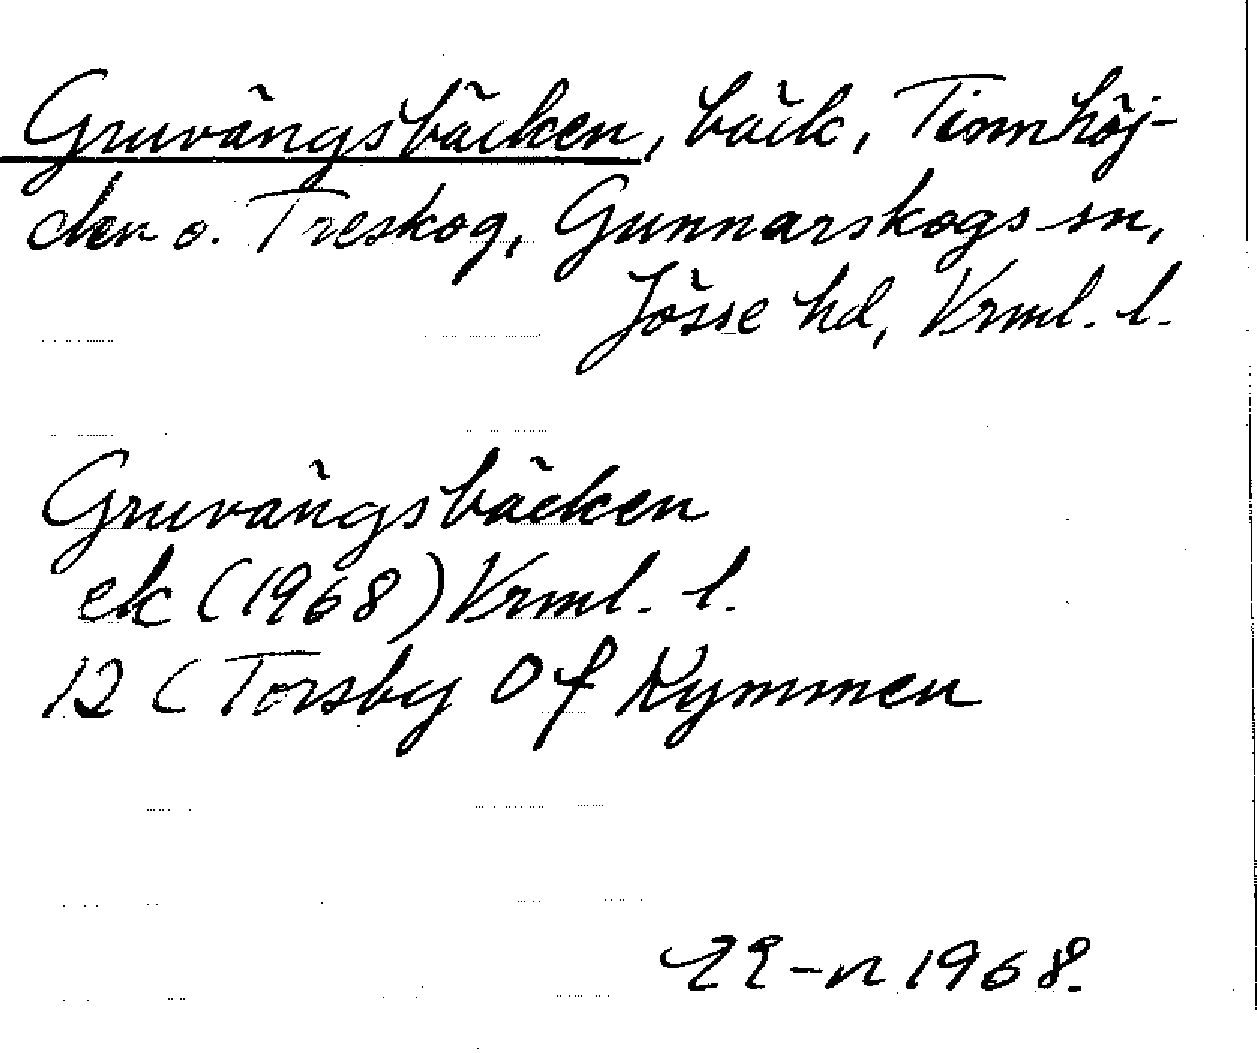 Gruvängsbäcken, bäck, Timhöj-
den o. Treskog, Gunnarskogs sn,
Jösse hd, Vrml. l.
Gruvängsbäcken
ek (1968) Vrml. l.
12 C Torsby 0 f Kymmen
1968.